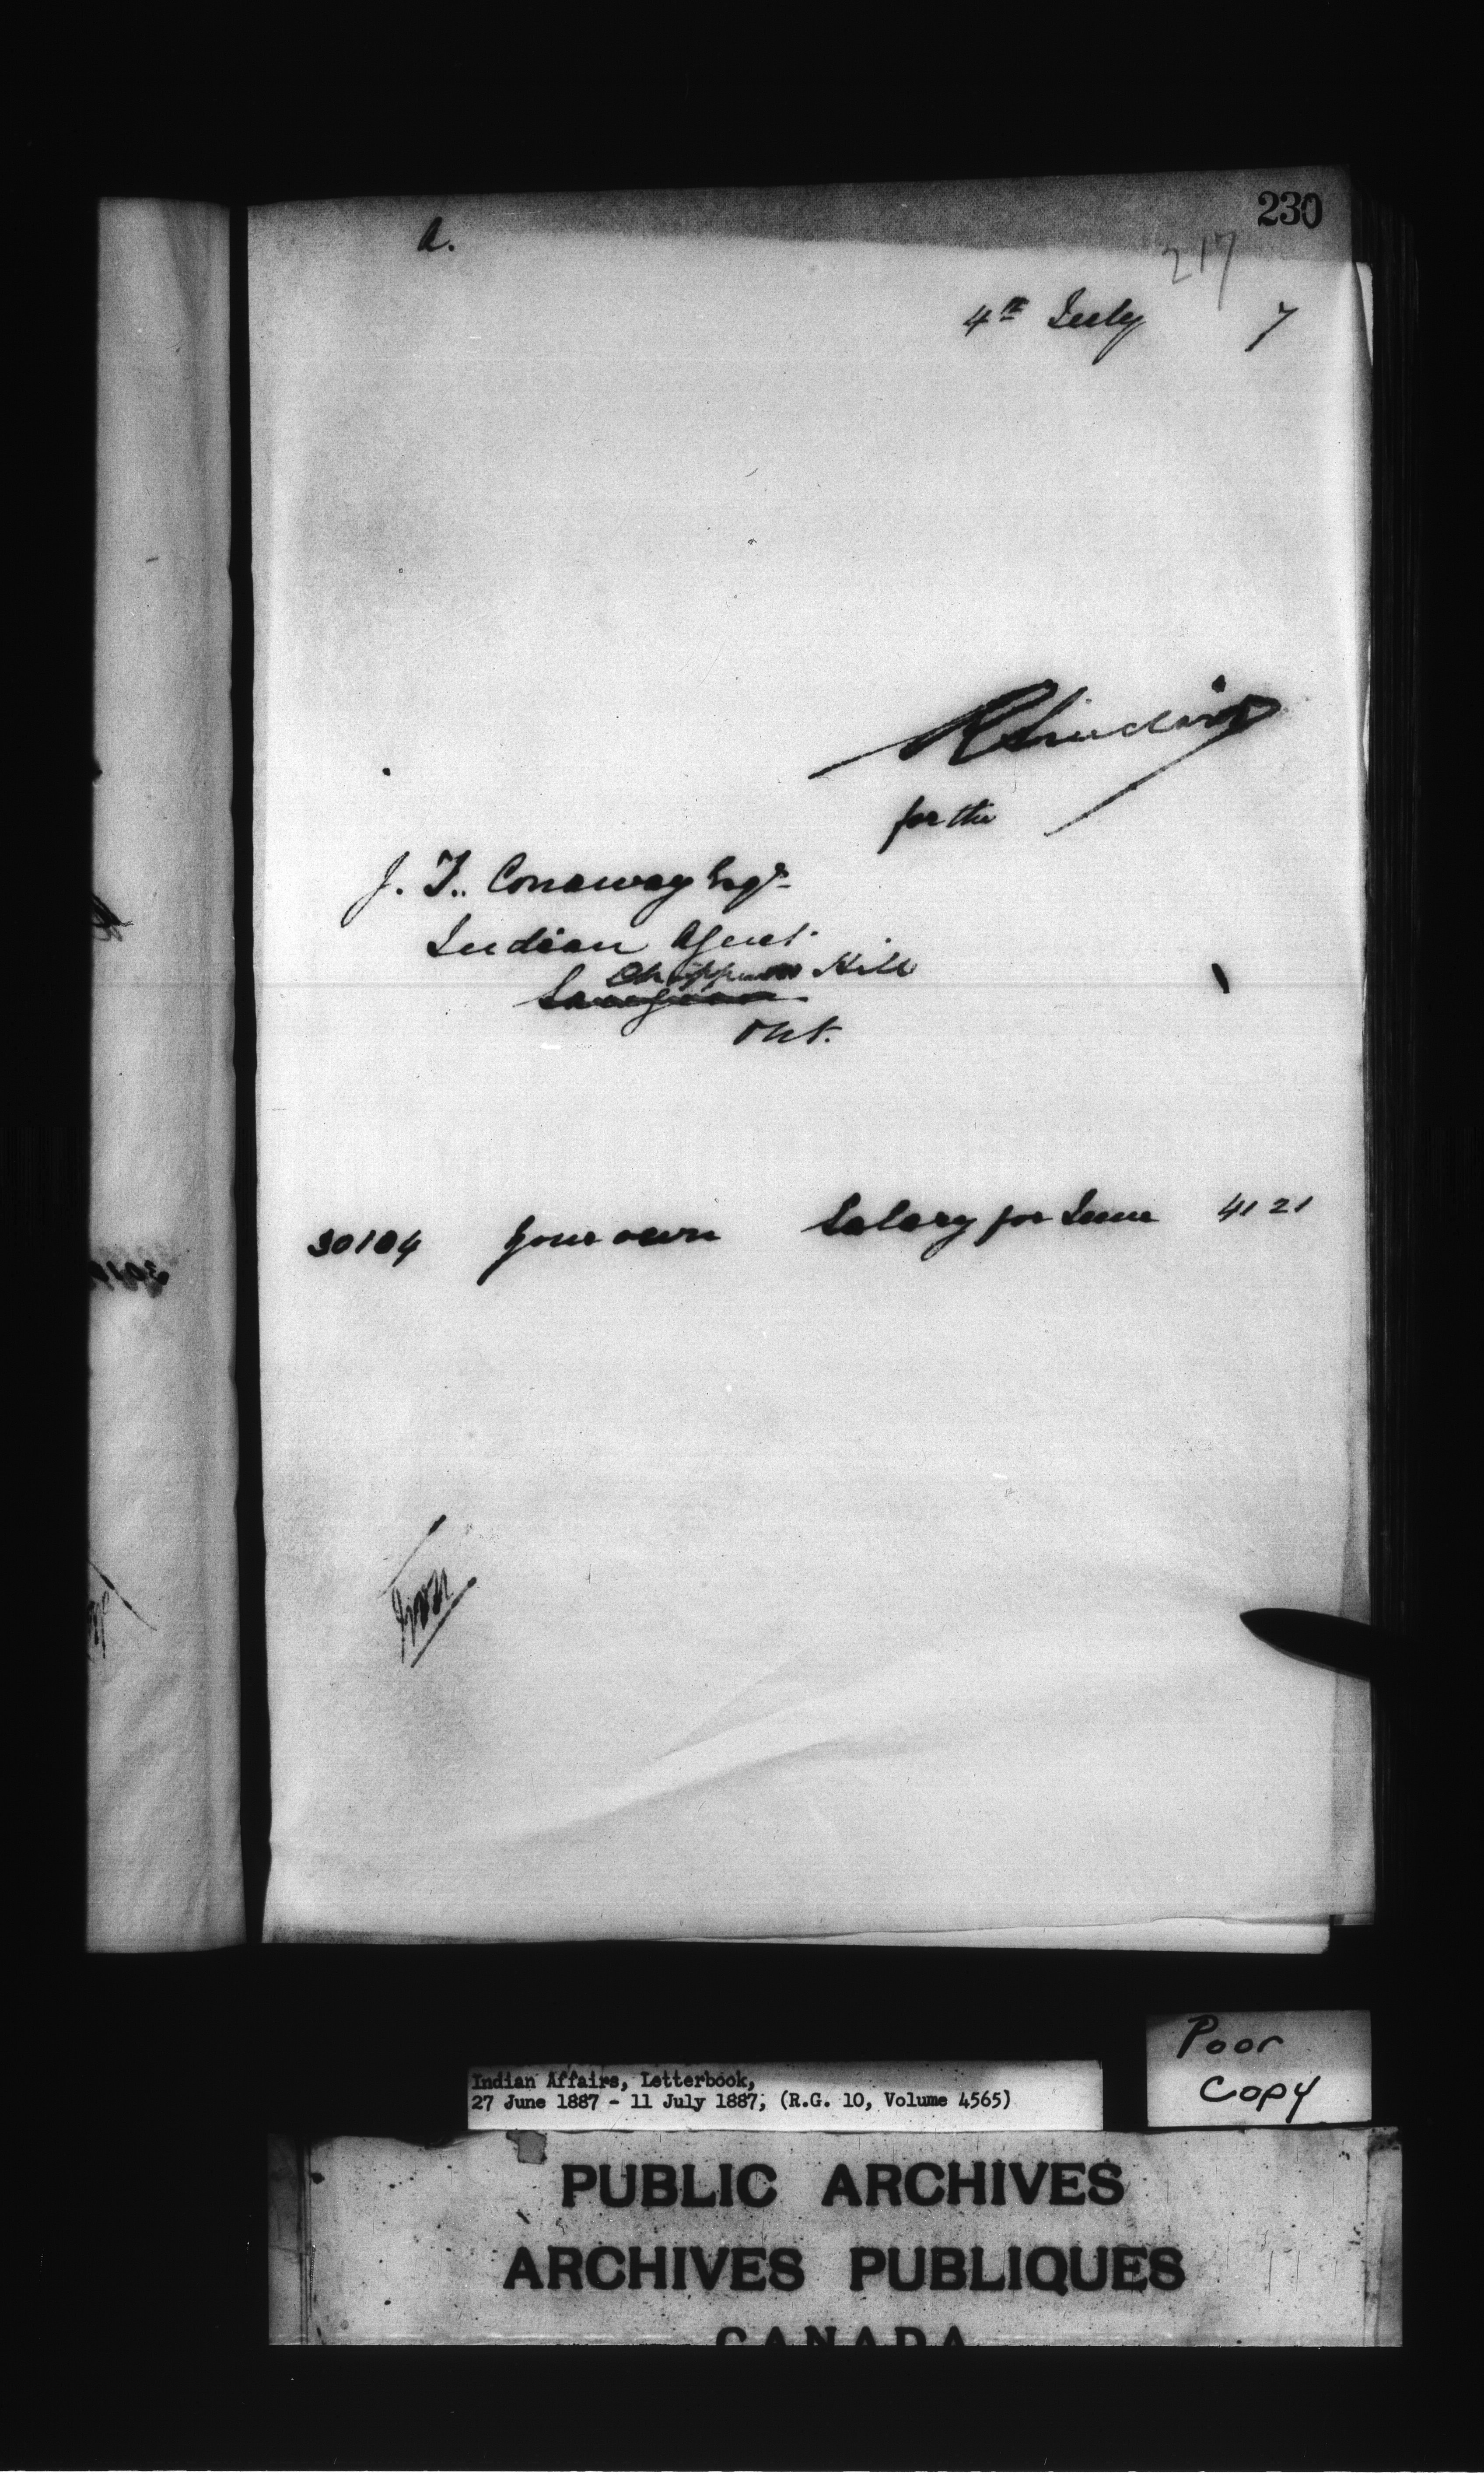 230
a.
217
4th July 7
R Sinclair
for the
J. T. Conaway Esqr
Indian Agent
Chippewa Hill
Saugeen
Ont.
30104 Your own Salary for June 41 21
Poor
Copy
Indian Affairs, Letterbook,
27 June 1887 - 11 July 1887, (R.G. 10, Volume 4565)
PUBLIC ARCHIVES
ARCHIVES PUBLIQUES
CANADA